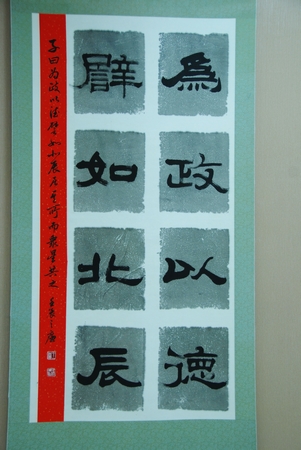 為政以德
辟如北辰
子曰為政以德譬如北辰居其所而眾星共之